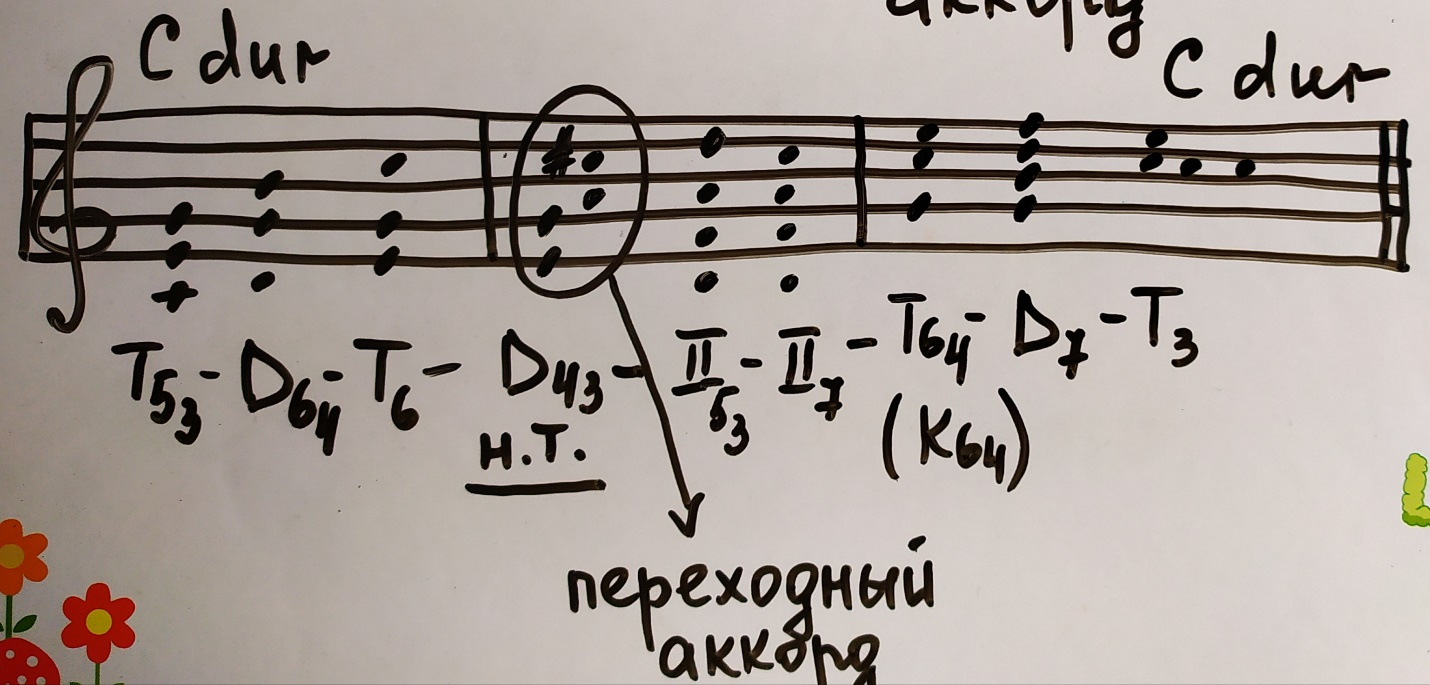 аккорд
C dur
C dur
T53 - D64 - T6 - D43 - II53 - II7 - T64 - D7 - T3
н.т. (K64)
переходный
аккорд